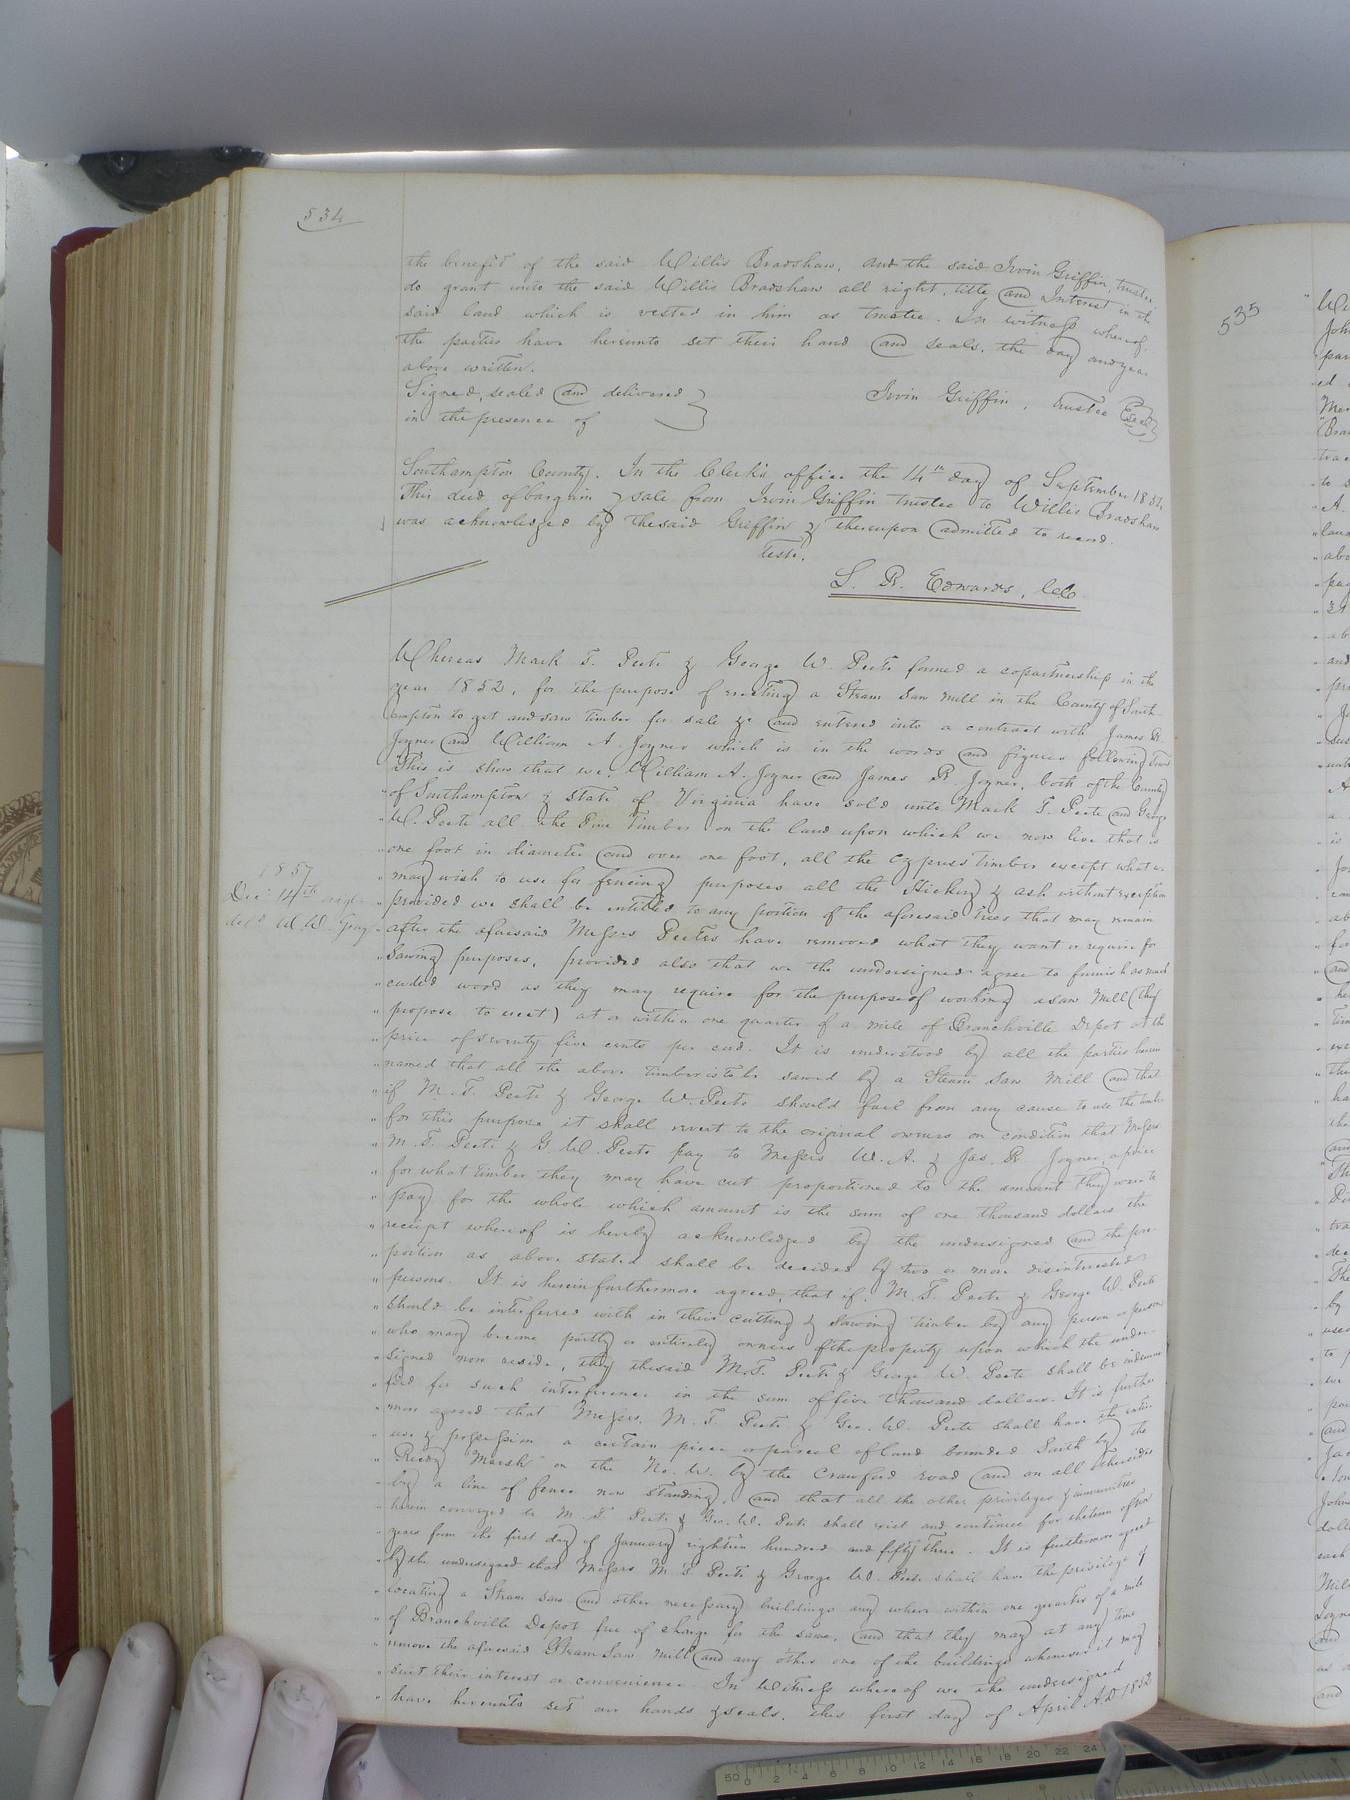 534
the benefit of the said Willis Bradshaw, and the said Irvin Griffin, trustee
do grant unto the said Willis Bradshaw all right, title and Interest in the
said land which is vested in him as trustee. In witness whereof
the parties have hereunto set their hand and seals, the day and year
above written.
Signed, sealed and delivered
in the presence of
Irvin Griffin, trustee Seal
Southampton County. In the Clerk's office the 14th day of September 1857
This deed of bargain & sale from Irvin Griffin trustee to Willis Bradshaw
was acknowledged by the said Griffin & thereupon admitted to record.
Teste.
L. R. Edwards, CC
Whereas Mark T. Peete & George W. Peete formed a copartnership in the
year 1852, for the purpose of erecting a Steam Saw mill in the County of South
ampton to get and saw timber for sale &c and entered into a contract with James R.
Joyner and William A. Joyner which is in the words and figures following
"This is show that we, William A. Joyner and James R Joyner, both of the County
"of Southampton & State of Virginia have sold unto Mark T. Peete and George
"W. Peete all the Pine Timber on the land upon which we now live that is
"one foot in diameter and over one foot, all the cypress timber except what we
"may wish to use for fencing purposes all the Hickory & ash without exception
"provided we shall be entitled to any portion of the aforesaid trees that may remain
"after the aforesaid Messrs Peetes have removed what they want or require for
"Sawing purposes, provided also that we the undersigned agree to furnish as much
"corded wood as they may require for the purpose of working a saw Mill (they
"propose to erect) at or within one quarter of a mile of Branchville Depot at the
"price of seventy five cents per cord. It is understood by all the parties herein
"named that all the above timber is to be sawed by a Steam Saw Mill and that
"if M. T. Peete & George W. Peete should fail from any cause to use the timber
"for this purpose it shall revert to the original owners on condition that Messrs
"M. T. Peete & G. W. Peete pay to Messrs W. A. & Jas. R Joyner, a price
"for what timber they may have cut proportioned to the amount they were to
"pay for the whole which amount is the sum of one thousand dollars the
"receipt whereof is hereby acknowledged by the undersigned and the pro-
"portion as above stated shall be decided by two or more disinterested
"persons. It is herein furthermore agreed, that if, M. T. Peete & George W. Peete
"should be interferred with in their cutting & Sawing timber by any person or persons
"who may become partly or entirely owners of the property upon which the under-
"signed now reside, they the said M. T. Peete & George W. Peete shall be indemni
"fied for such interference in the sum of five thousand dollars. It is further
"more agreed that Messrs. M. T. Peete & Geo. W. Peete shall have the entire
"use & possession a certain piece or parcel of land bounded South by the
"Reedy Marsh on the No. W. by the Crawford road and on all other sides
"by a line of fence now standing, and that all the other privileges & immunities
"herein conveyed to M. T. Peete & Geo. W. Peete shall exist and continue for the term of
"years from the first day of January eighteen hundred and fifty three. It is furthermore agreed
"by the undersigned that Messrs M. T. Peete & George W. Peete shall have the privilege of
"locating a Steam Saw and other necessary buildings any where within one quarter of a mile
"of Branchville Depot free of charge for the same, and that they may at any time
"remove the aforesaid Steam Saw Mill and any other one of the buildings whenever it may
"suit their interest or convenience. In Witness whereof we the undersigned
"have hereunto set our hands & seals, this first day of April A.D. 1852
1857
Dec 14th
deld W. W. Gray
535
50 0 2 4 6 8 10 12 14 16 18 20 22 24